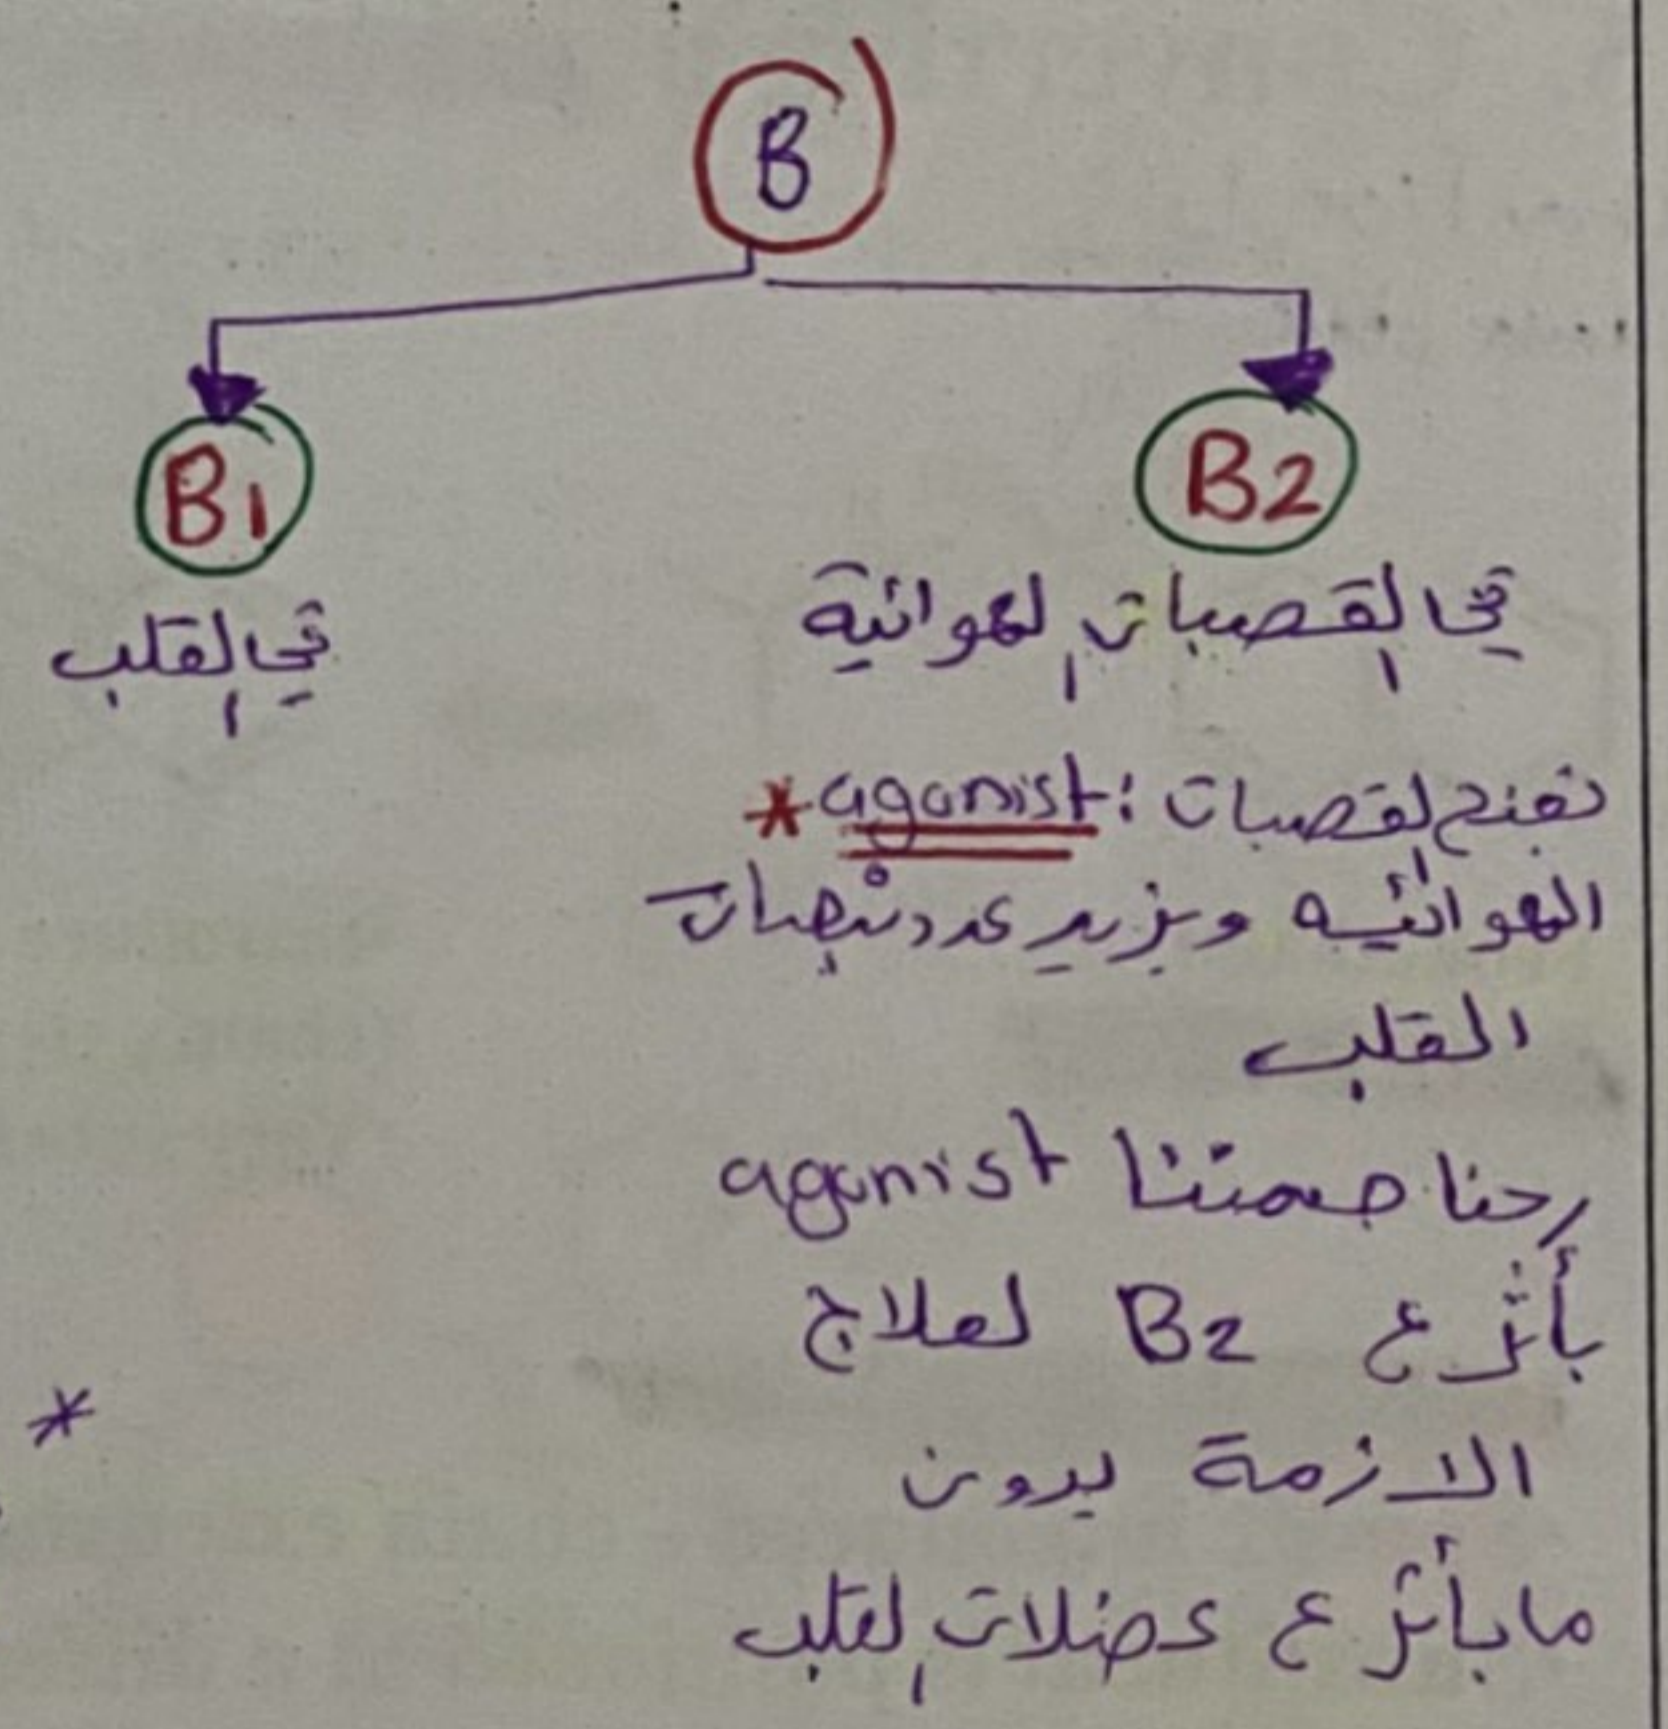 B
B1
B2
في القلب
في القصبات الهوائية
* agonist: تفتح القصبات
الهوائيه ويزيد عدد نبضات
القلب
احنا مهمتنا agonist
بأثر ع B2 لعلاج
الازمة بدون
ما بأثر ع عضلات القلب
*